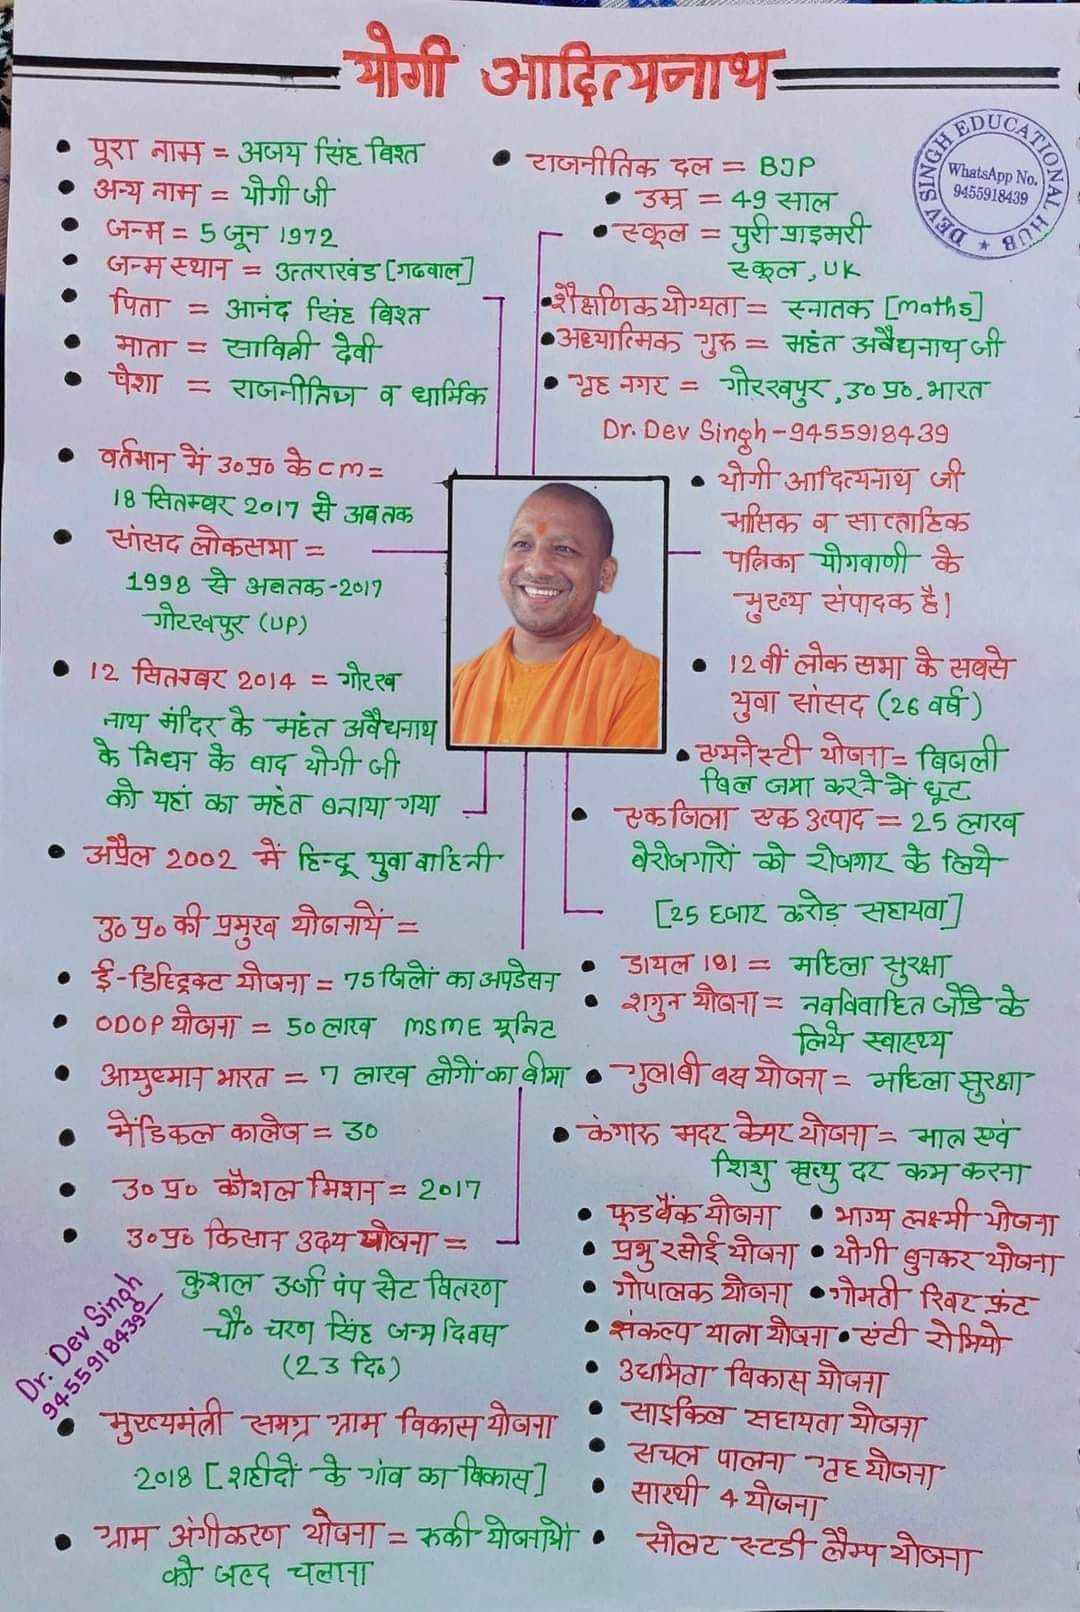 योगी आदित्यनाथ
DEV SINGH EDUCATIONAL HUB
WhatsApp No.
9455918439
• पूरा नाम = अजय सिंह विश्त
• अन्य नाम = योगी जी
• जन्म = 5 जून 1972
• जन्म स्थान = उत्तराखंड [गढवाल]
• पिता = आनंद सिंह विश्त
• माता = सावित्री देवी
• पेशा = राजनीतिज्ञ व धार्मिक
• वर्तमान में उ० प्र० के cm =
18 सितम्वर 2017 से अब तक
• सांसद लोकसभा =
1998 से अबतक -2017
गोरखपुर (UP)
• 12 सितम्बर 2014 = गोरख
नाथ मंदिर के महंत अवैद्यनाथ
के निधन के बाद योगी जी
को यहां का महंत बनाया गया
• अप्रैल 2002 में हिन्दू युवा वाहिनी
उ० प्र० की प्रमुख योजनायें =
• ई-डिस्ट्रिक्ट योजना = 75 जिलों का अपडेसन
• ODOP योजना = 50 लाख MSME यूनिट
• आयुष्मान भारत = 7 लाख लोगों का बीमा
• मेंडिकल कालेज = 30
• उ० प्र० कौशल मिशन = 2017
• उ० प्र० किसान उदय योजना =
कुशल उर्जा पंप सेट वितरण
चौ० चरण सिंह जन्म दिवस
(23 दि०)
Dr. Dev Singh
9455918439
• मुख्यमंत्री समग्र ग्राम विकास योजना
2018 [शहीदों के गांव का विकास]
• ग्राम अंगीकरण योजना = रुकी योजनाओं
को जल्द चलाना
• राजनीतिक दल = BJP
• उम्र = 49 साल
• स्कूल = पुरी प्राइमरी
स्कूल, UK
• शैक्षणिक योग्यता = स्नातक [maths]
• अध्यात्मिक गुरु = महंत अवैद्यनाथ जी
• गृह नगर = गोरखपुर, उ० प्र०. भारत
Dr. Dev Singh - 9455918439
• योगी आदित्यनाथ जी
मासिक व साप्ताहिक
पत्रिका योगवाणी के
मुख्य संपादक है।
• 12वीं लोक सभा के सबसे
युवा सांसद (26 वर्ष)
• एमनेस्टी योजना = बिजली
बिल जमा करने में छूट
• एक जिला एक उत्पाद = 25 लाख
बेरोजगारों को रोजगार के लिये
[25 हजार करोड़ सहायता]
• डायल 181 = महिला सुरक्षा
• शगुन योजना = नवविवाहित जोडे के
लिये स्वास्थ्य
• गुलाबी बस योजना = महिला सुरक्षा
• कंगारू मदर केयर योजना = मातृ एवं
शिशु मृत्यु दर कम करना
• फूडबैंक योजना • भाग्य लक्ष्मी योजना
• प्रभु रसोई योजना • योगी बुनकर योजना
• गोपालक योजना • गोमती रिवर फ्रंट
• संकल्प यात्रा योजना • एंटी रोमियो
• उद्यमिता विकास योजना
• साइकिल सहायता योजना
• सचल पालना गृह योजना
• सारथी 4 योजना
• सोलर स्टडी लैम्प योजना